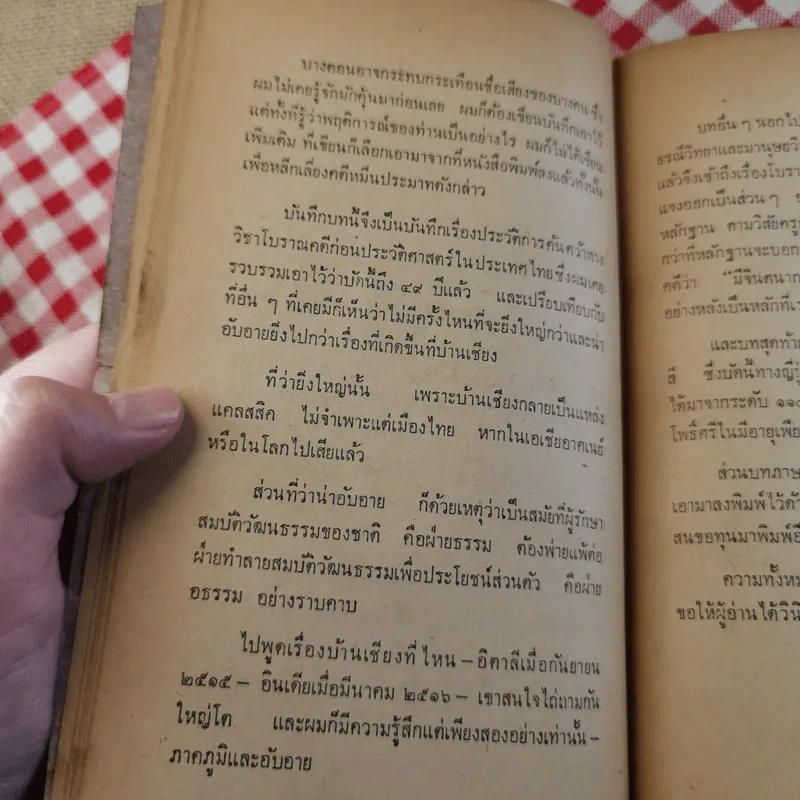 บางตอนอาจกระทบกระเทือนชื่อเสียงของบางคน ซึ่ง
ผมไม่เคยรู้จักมักคุ้นมาก่อนเลย ผมก็ต้องเขียนบันทึกเอาไว้
แต่ทั้งที่รู้ว่าพฤติการณ์ของท่านเป็นอย่างไร ผมก็ไม่ได้เขียน
เพิ่มเติม ที่เขียนก็เลือกเอามาจากที่หนังสือพิมพ์ลงแล้วทั้งนั้น
เพื่อหลีกเลี่ยงคดีหมิ่นประมาทดังกล่าว
บันทึกบทนี้จึงเป็นบันทึกเรื่องประวัติการค้นคว้าทาง
วิชาโบราณคดีก่อนประวัติศาสตร์ในประเทศไทยซึ่งผมเคย
รวบรวมเอาไว้ว่าบัดนี้ถึง ๔๙ ปีแล้ว และเปรียบเทียบกับ
ที่อื่น ๆ ที่เคยมีก็เห็นว่าไม่มีครั้งไหนที่จะยิ่งใหญ่กว่าและน่า
อับอายยิ่งไปกว่าเรื่องที่เกิดขึ้นที่บ้านเชียง
ที่ว่ายิ่งใหญ่นั้น เพราะบ้านเชียงกลายเป็นแหล่ง
แคลสสิค ไม่จำเพาะแต่เมืองไทย หากในเอเซียอาคเนย์
หรือในโลกไปเสียแล้ว
ส่วนที่ว่าน่าอับอาย ก็ด้วยเหตุว่าเป็นสมัยที่ผู้รักษา
สมบัติวัฒนธรรมของชาติ คือฝ่ายธรรม ต้องพ่ายแพ้ต่อ
ฝ่ายทำลายสมบัติวัฒนธรรมเพื่อประโยชน์ส่วนตัว คือฝ่าย
อธรรม อย่างราบคาบ
ไปพูดเรื่องบ้านเชียงที่ไหน – อิตาลีเมื่อกันยายน
๒๕๑๕ – อินเดียเมื่อมีนาคม ๒๕๑๖ – เขาสนใจไถ่ถามกัน
ใหญ่โต และผมก็มีความรู้สึกแต่เพียงสองอย่างเท่านั้น –
ภาคภูมิและอับอาย
บทอื่น ๆ นอกไป
ธรณีวิทยาและมานุษยวิ
แล้วจึงเข้าถึงเรื่องโบรา
แซงออกเป็นส่วน ๆ
หลักฐาน ตามวิสัยครู
กว่าที่หลักฐานจะบอก
คดีว่า “มีจินตนาก
อย่างหลังเป็นหลักที่เ
และบทสุดท้าย
สี ซึ่งบัดนี้ทางญี่ปุ่
ได้มาจากระดับ ๑๑๐
โพธิ์ศรีในมีอายุเพีย
ส่วนบทภาษ
เอามาลงพิมพ์ไว้ด้ว
สนขอทุนมาพิมพ์อี
ความทั้งหม
ขอให้ผู้อ่านได้วินิ